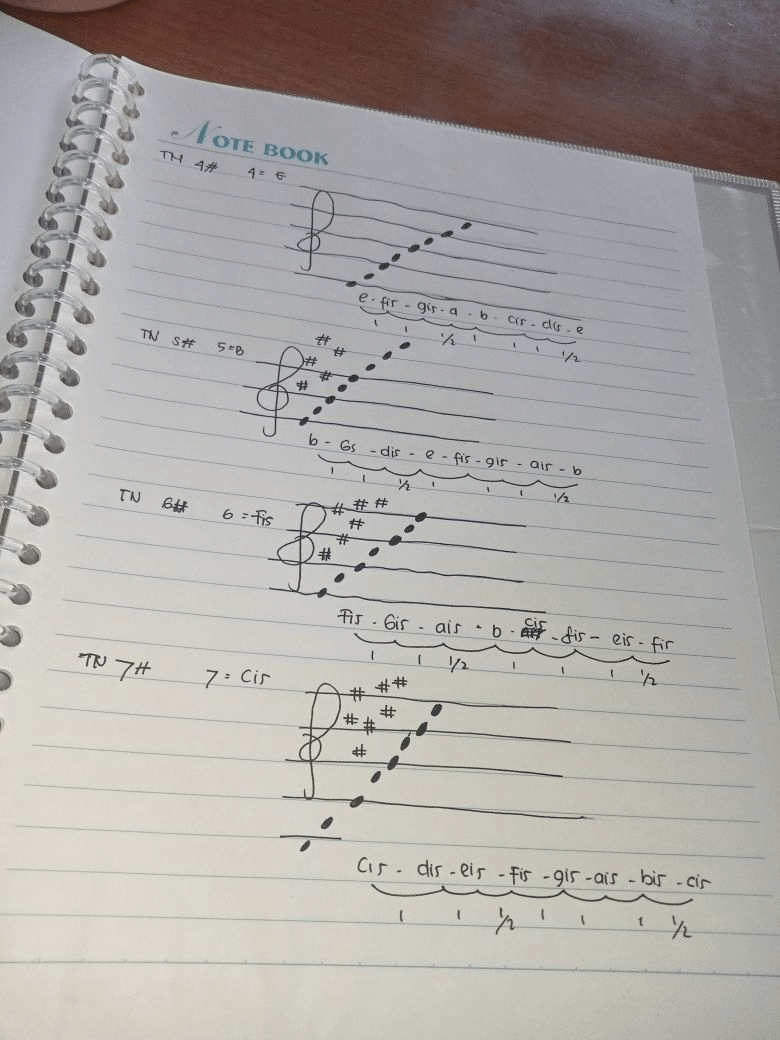 NOTE BOOK
TN 4# 4 = E
e - fis - gis - a - b - cis - dis - e
1 1 1/2 1 1 1 1/2
TN 5# 5 = B
# #
# #
#
b - Gs - dis - e - fis - gis - ais - b
1 1 1/2 1 1 1 1/2
TN 6# 6 = fis
# # #
# #
#
Fis - Gis - ais - b - cis - dis - eis - fis
1 1 1/2 1 1 1 1/2
TN 7# 7 = Cis
# # #
# # #
#
Cis - dis - eis - fis - gis - ais - bis - cis
1 1 1/2 1 1 1 1/2